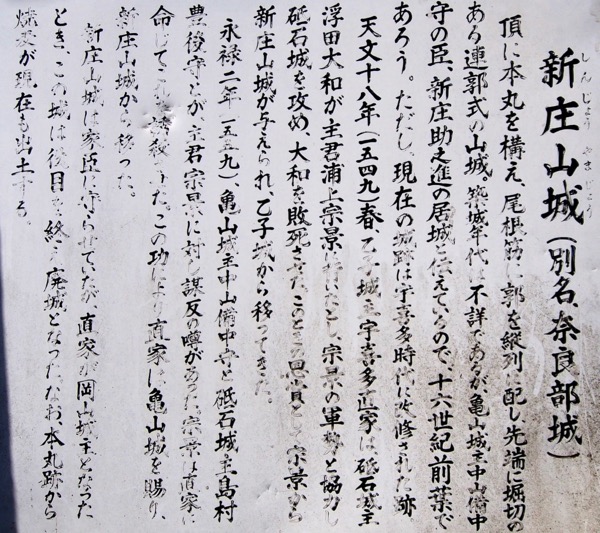 しんじょう やまじょう
新庄山城(別名、奈良部城)
頂に本丸を構え、尾根筋に郭を縦列 配し先端に堀切の
ある連郭式の山城。築城年代は不詳であるが、亀山城主中山備中
守の臣、新庄助之進の居城と伝えているので、十六世紀前葉で
あろう。ただし、現在の城跡は宇喜多時代に改修された跡
天文十八年(一五四九)春、乙子城主宇喜多直家は砥石城主
浮田大和が主君浦上宗景に 宗景の軍勢と協力し
砥石城を攻め、大和を敗死させた。このときの恩賞として宗景から
新庄山城が与えられ、乙子城から移ってきた。
永禄二年(一五五九)、亀山城主中山備中守と砥石城主島村
豊後守とが、主君宗景に対し謀反の噂があった。宗景は直家に
命じてこれを 殺 した。この功により直家は亀山城を賜り、
新庄山城から移った。
新庄山城は家臣に守らせていたが、直家が岡山城主となった
とき、この城は役目を終え廃城となった。なお、本丸跡から
焼 が現在も出土する。